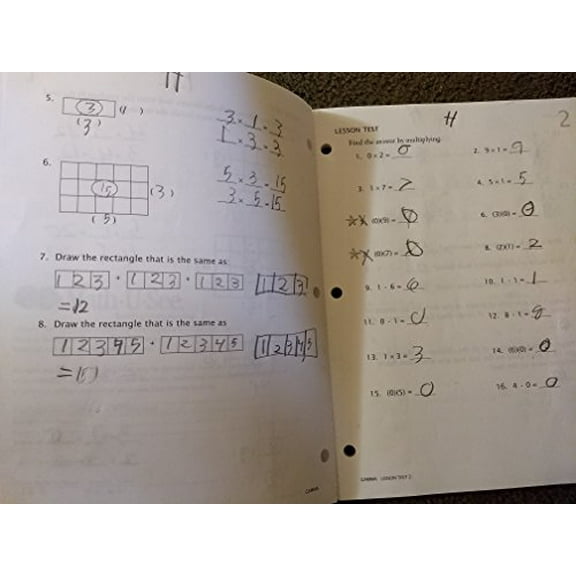 H
5. (3) (1 )
(3)
3 × 1 = 3
1 × 3 = 3
6. (15) (3)
(5)
5 × 3 = 15
3 × 5 = 15
7. Draw the rectangle that is the same as
1 2 3 + 1 2 3 + 1 2 3 1 2 3
= 12
8. Draw the rectangle that is the same as
1 2 3 4 5 + 1 2 3 4 5 1 2 3 4 5
GAMMA
H 2
LESSON TEST
Find the answer by multiplying.
1. 0 × 2 = 0
2. 9 × 1 = 9
3. 1 × 7 = 7
4. 5 × 1 = 5
(0)(9) = 0
6. (3)(0) = 0
(0)(7) = 0
8. (2)(1) = 2
9. 1 · 6 = 6
10. 1 · 1 = 1
11. 0 · 1 = 0
12. 8 · 1 = 8
13. 1 × 3 = 3
14. (6)(0) = 0
15. (0)(5) = 0
16. 4 · 0 = 0
GAMMA LESSON TEST 2